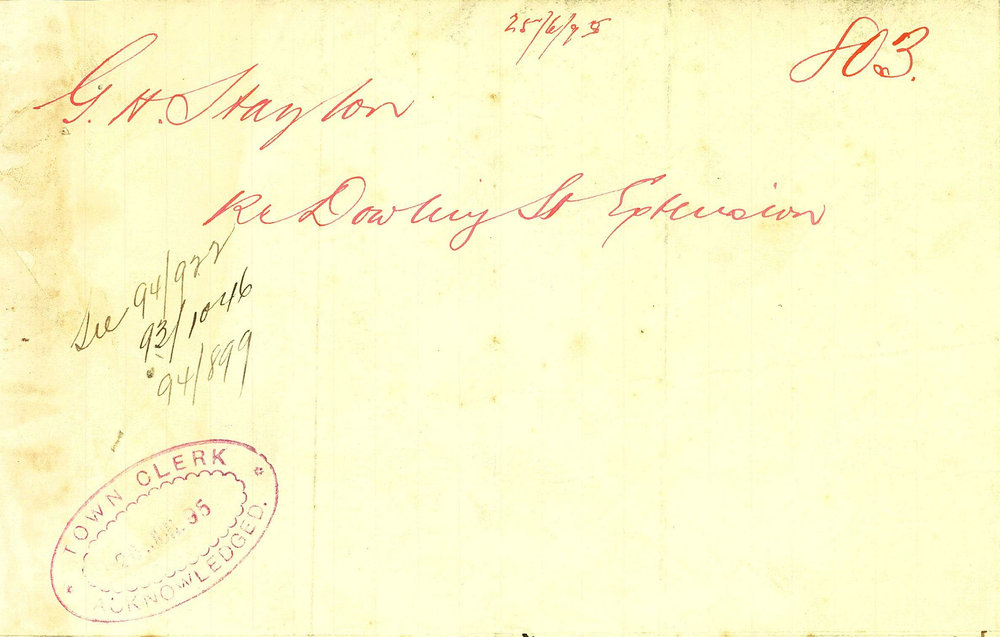 25/6/95
803.
G. H. Stayton
Re Dowling St Extension
See 94/922
93/1046
94/899
TOWN CLERK
JUN. 95
ACKNOWLEDGED.